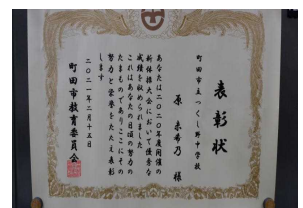 表彰状
町田市立つくし野中学校
原 未希乃 様
あなたは二〇二〇年度開催の
新体操大会において優秀な
成績を収められました
これはあなたの日頃の努力の
たまものでありここにその
努力と栄誉をたたえ表彰
します
二〇二一年二月十五日
町田市教育委員会